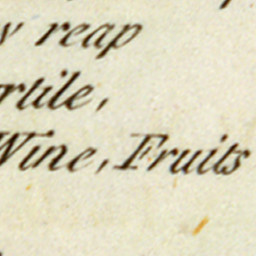 y reap
rtile,
Wine, Fruits